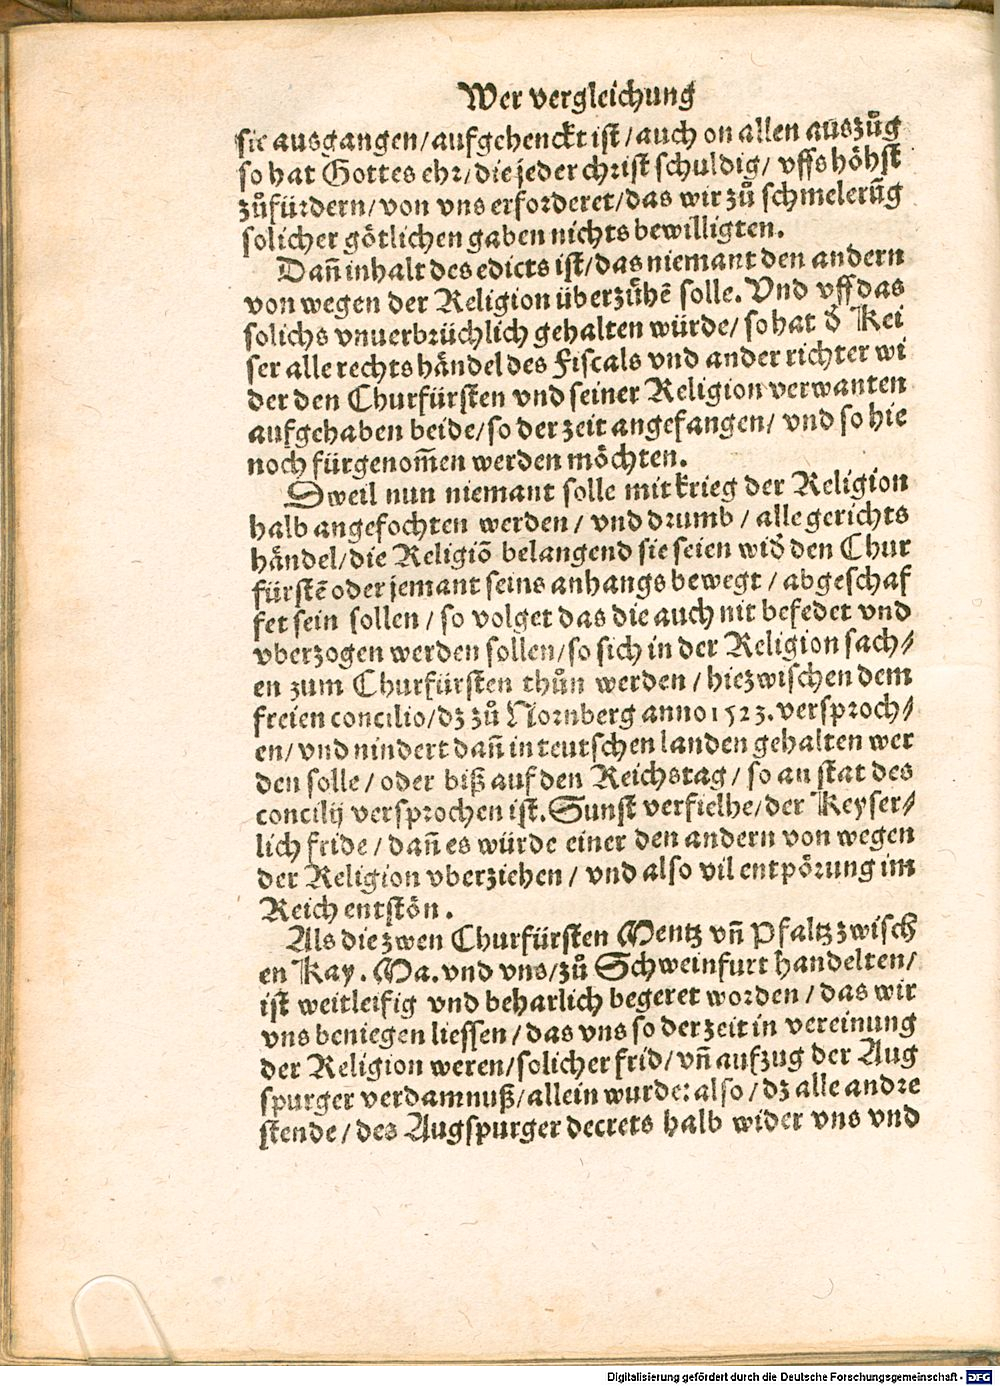 Wer vergleichung
sie ausgangen/aufgehenckt ist/auch on allen auszůg
so hat Gottes ehr/die jeder christ schuldig/ vffs höhst
zůfürdern/von vns erforderet/das wir zů schmelerūg
solicher götlichen gaben nichts bewilligten.
Dañ inhalt des edicts ist/das niemant den andern
von wegen der Religion überzühē solle. Vnd vff das
solichs vnuerbrüchlich gehalten würde/ so hat d̄ Kei
ser alle rechts händel des Fiscals vnd ander richter wi
der den Churfürsten vnd seiner Religion verwanten
aufgehaben beide/so der zeit angefangen/ vnd so hie
noch fürgenom̄en werden möchten.
Sweil nun niemant solle mit krieg der Religion
halb angefochten werden / vnd drumb / alle gerichts
händel/die Religiō belangend sie seien wid̄ den Chur
fürstē oder jemant seins anhangs bewegt / abgeschaf
fet sein sollen / so volget das die auch nit befedet vnd
vberzogen werden sollen/so sich in der Religion sach⸗
en zum Churfürsten thůn werden / hiezwischen dem
freien concilio/dz zů Nornberg anno 1523. versproch⸗
en/ vnd nindert dañ in teutschen landen gehalten wer
den solle / oder biß auf den Reichstag / so an stat des
concilij versprochen ist. Sunst verfielhe/der Keyser⸗
lich fride / dañ es würde einer den andern von wegen
der Religion vberziehen / vnd also vil entpörung im
Reich entstön.
Als die zwen Churfürsten Mentz vñ Pfaltz zwisch
en Kay. Ma. vnd vns/zů Schweinfurt handelten/
ist weitleifig vnd beharlich begeret worden / das wir
vns beniegen liessen / das vns so der zeit in vereinung
der Religion weren/solicher frid/vñ aufzug der Aug
spurger verdamnuß/allein wurde: also / dz alle andre
stende / des Augspurger decrets halb wider vns vnd
Digitalisierung gefördert durch die Deutsche Forschungsgemeinschaft - DFG